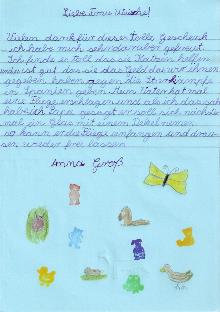 Liebe Frau Wäsche!
Vielen dank für dieses tolle Geschenk
ich habe mich sehr darüber gefreut.
Ich finde es toll das sie Katzen helfen
und auch gut das sie das Geld da wir ihnen
gegeben haben gegen die Stierkämpfe
in Spanien geben. Mein Vater hat mal
eine Fliege erschlagen und als ich das sah
habe ich Papa gesagt er soll sich nächstes
mal ein Glas mit einem Dekel nemen
so kann er die Fliege einfangen und drau-
sen wieder frei lassen
Anna Groß